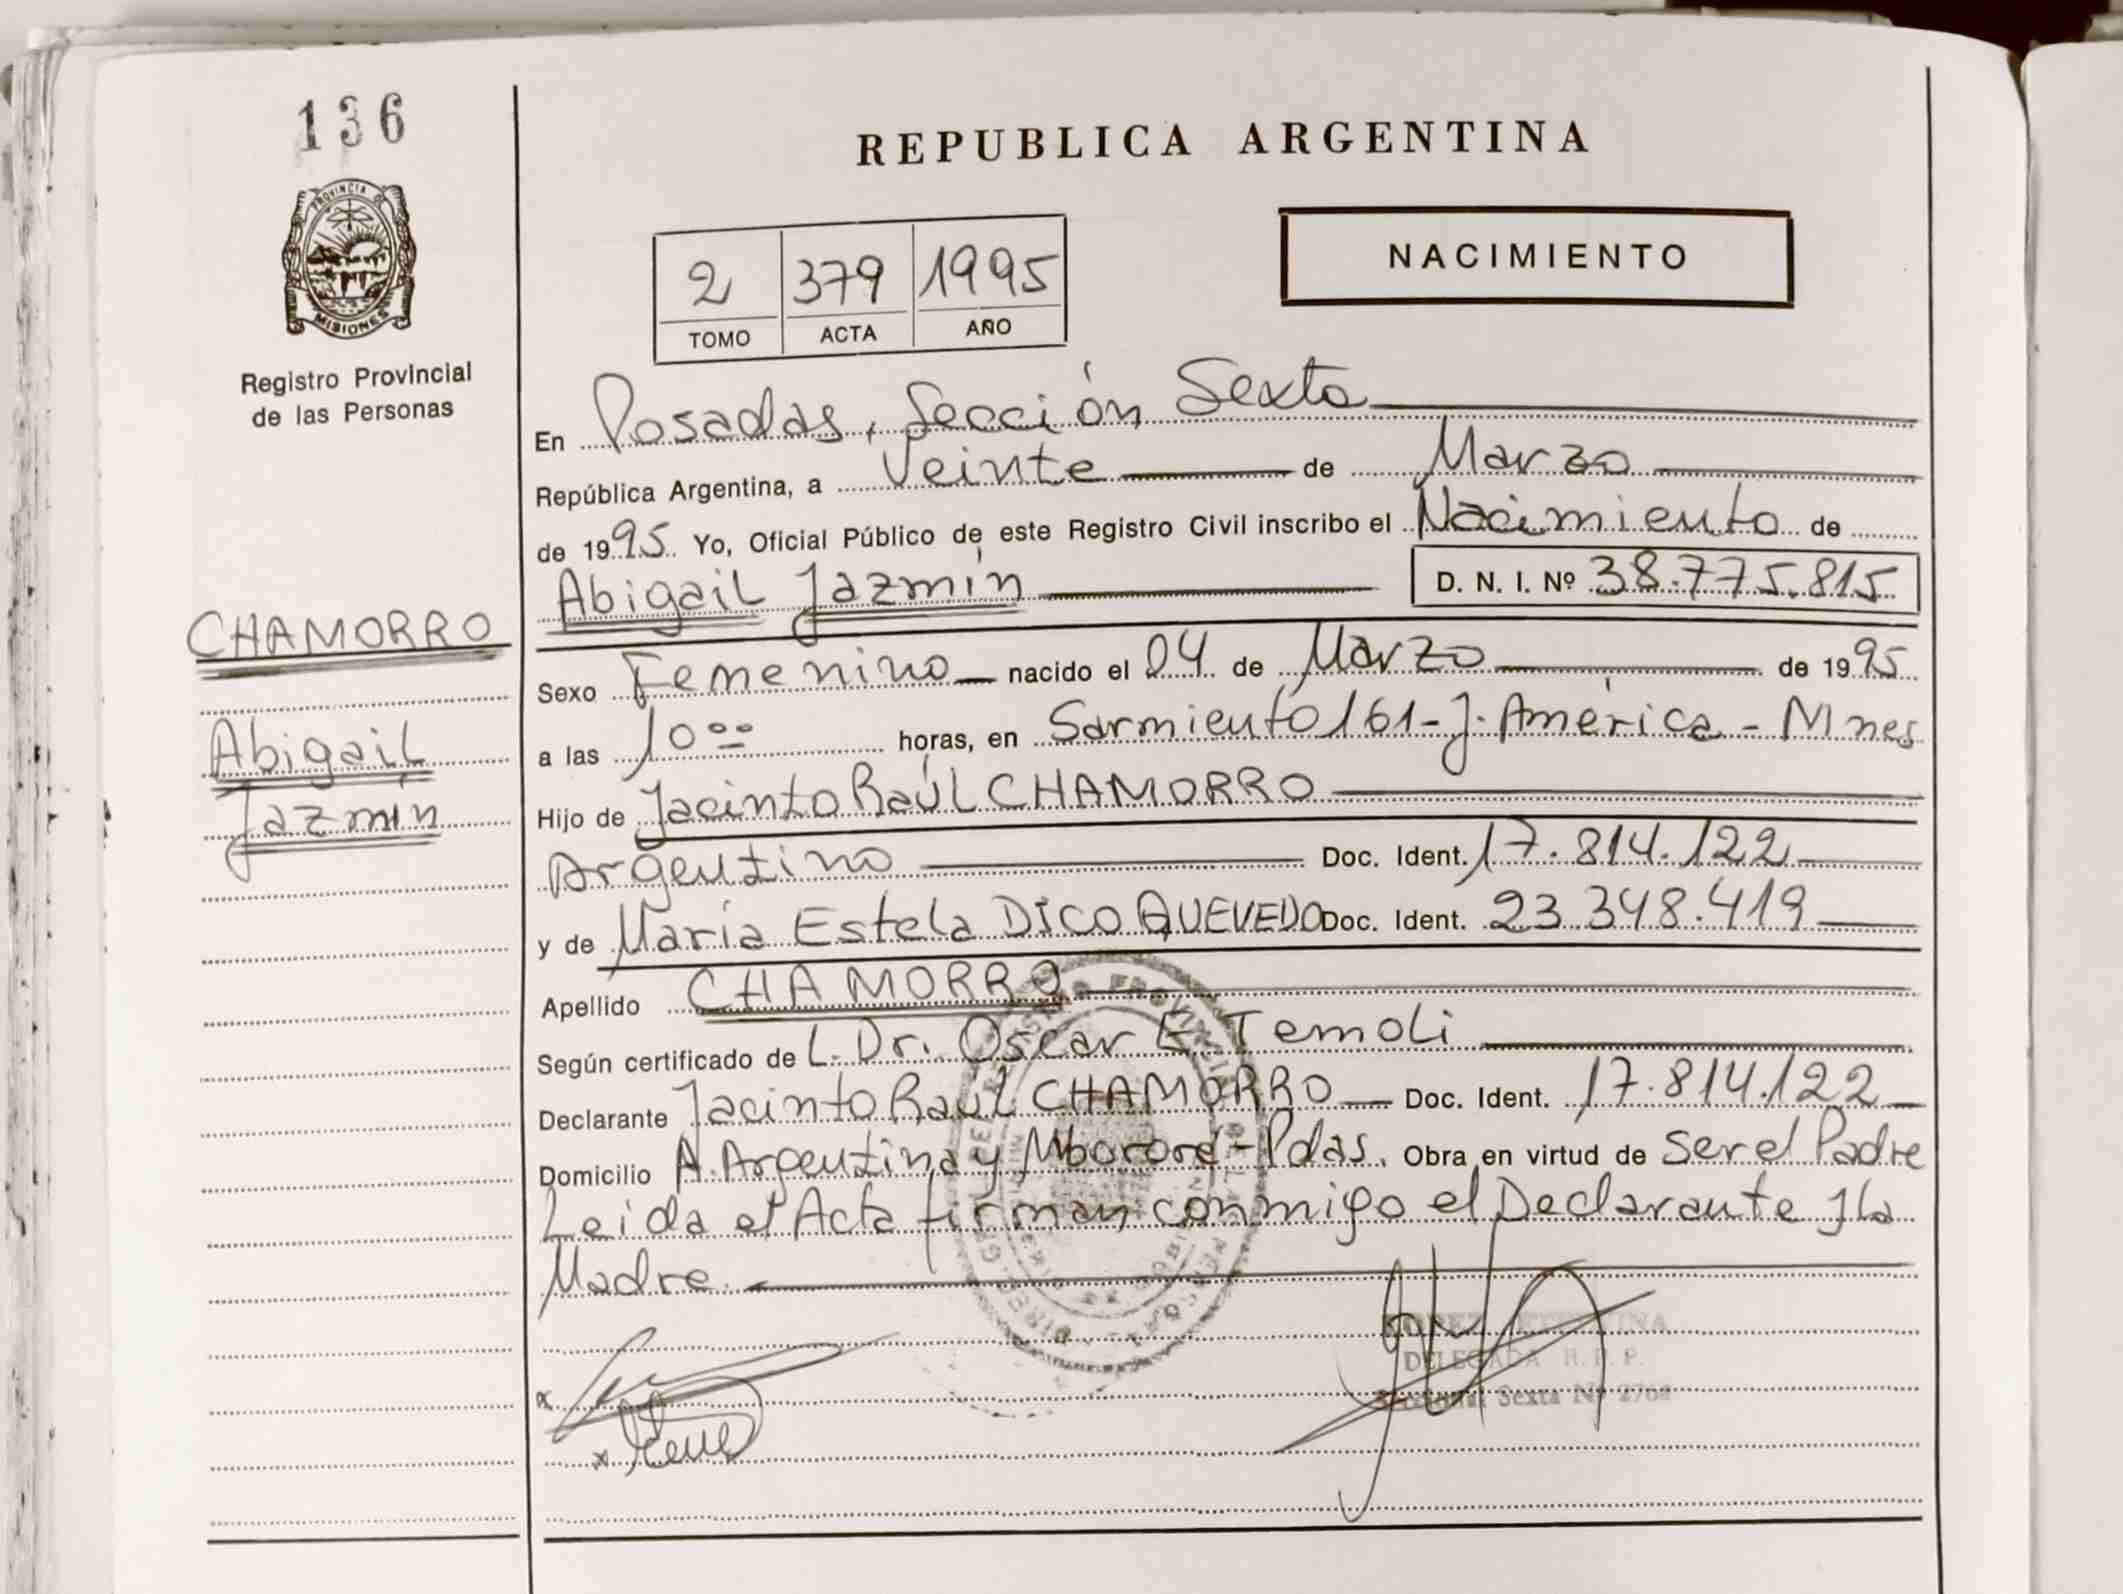 136
PROVINCIA DE
MISIONES
Registro Provincial
de las Personas
CHAMORRO
Abigail
Jazmín
REPUBLICA ARGENTINA
NACIMIENTO
2 379 1995
TOMO ACTA AÑO
En Posadas, Sección Sexta
República Argentina, a Veinte de Marzo
de 1995 Yo, Oficial Público de este Registro Civil inscribo el Nacimiento de
Abigail Jazmín D. N. I. Nº 38.775.815
Sexo Femenino nacido el 04 de Marzo de 1995
a las 10 00 horas, en Sarmiento 161 - J. América - Mnes
Hijo de Jacinto Raúl CHAMORRO
Argentino Doc. Ident. 17.814.122
y de María Estela DICO QUEVEDO Doc. Ident. 23.348.419
Apellido CHAMORRO
Según certificado de L. Dr. Oscar E. Temoli
Declarante Jacinto Raúl CHAMORRO Doc. Ident. 17.814.122
Domicilio A. Argentina y Mbororé - Pdas. Obra en virtud de Ser el Padre
Leida el Acta firman conmigo el Declarante y la
Madre.
DELEGADA R. P. P.
Sexta Nº 2768